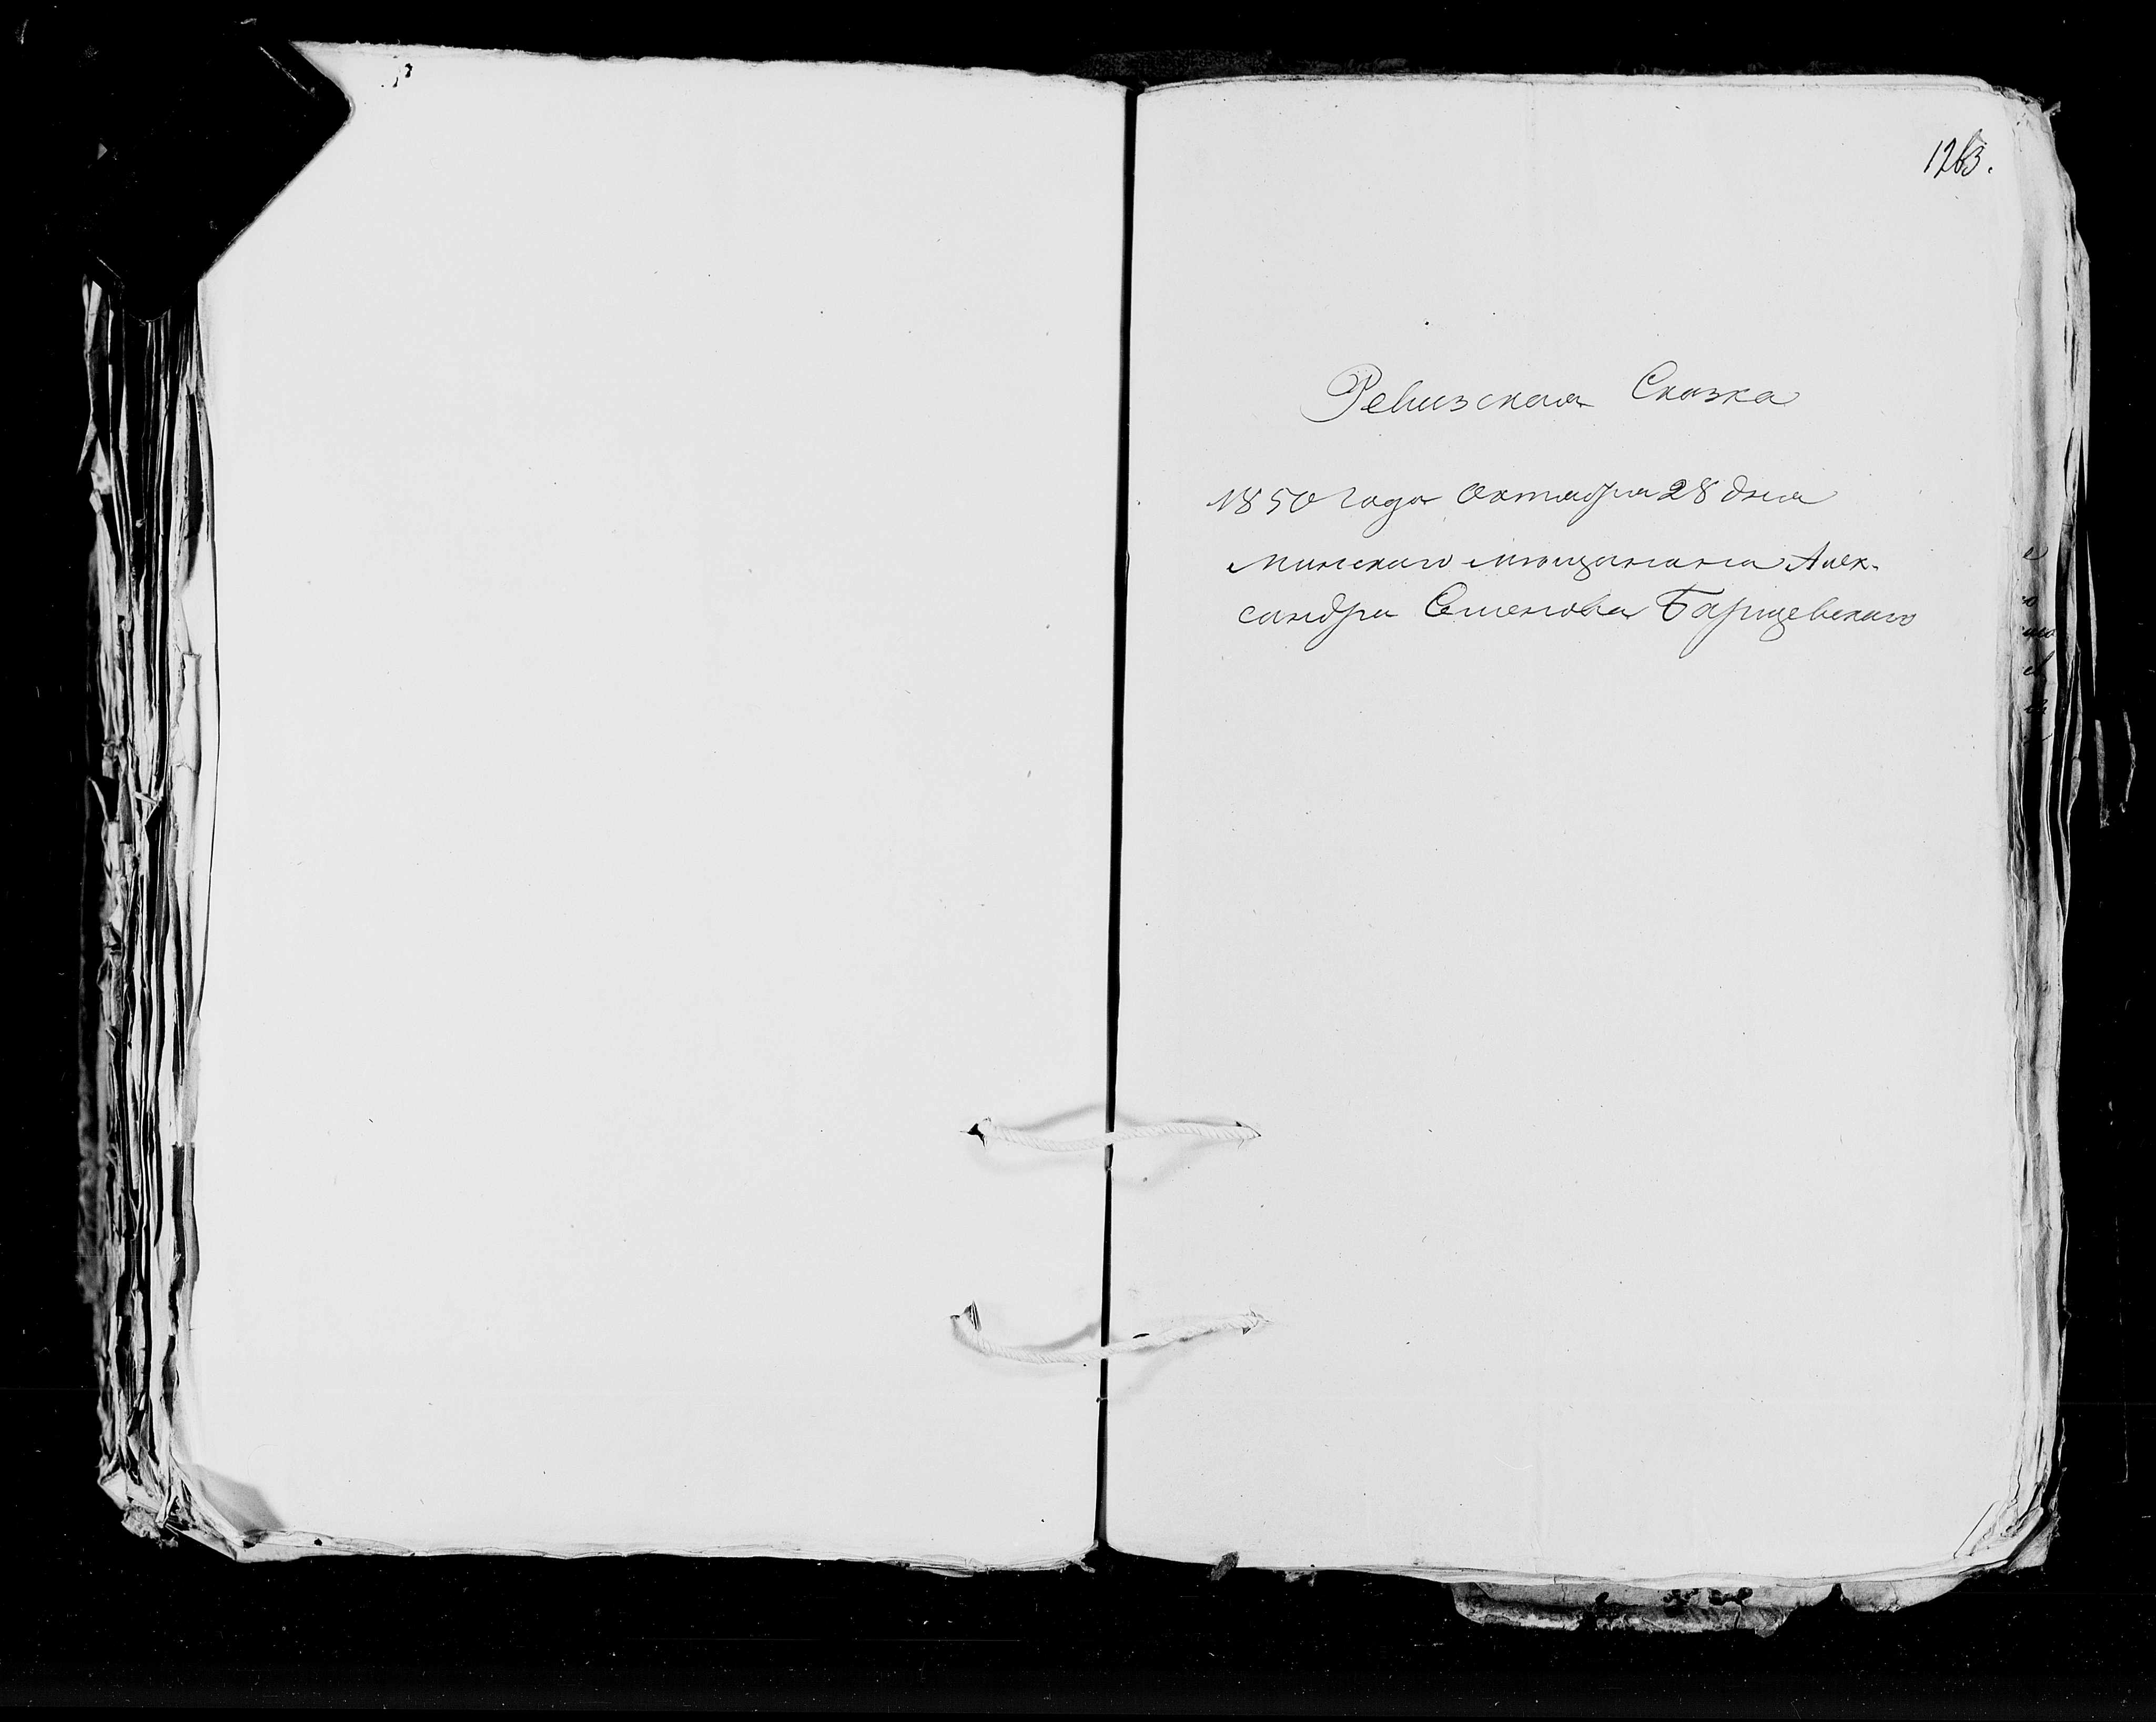 1263.
Ревизская Сказка
1850 года Октября 28 дня
Минскаго мѣщанина Алек-
сандра Семенова Барщевскаго